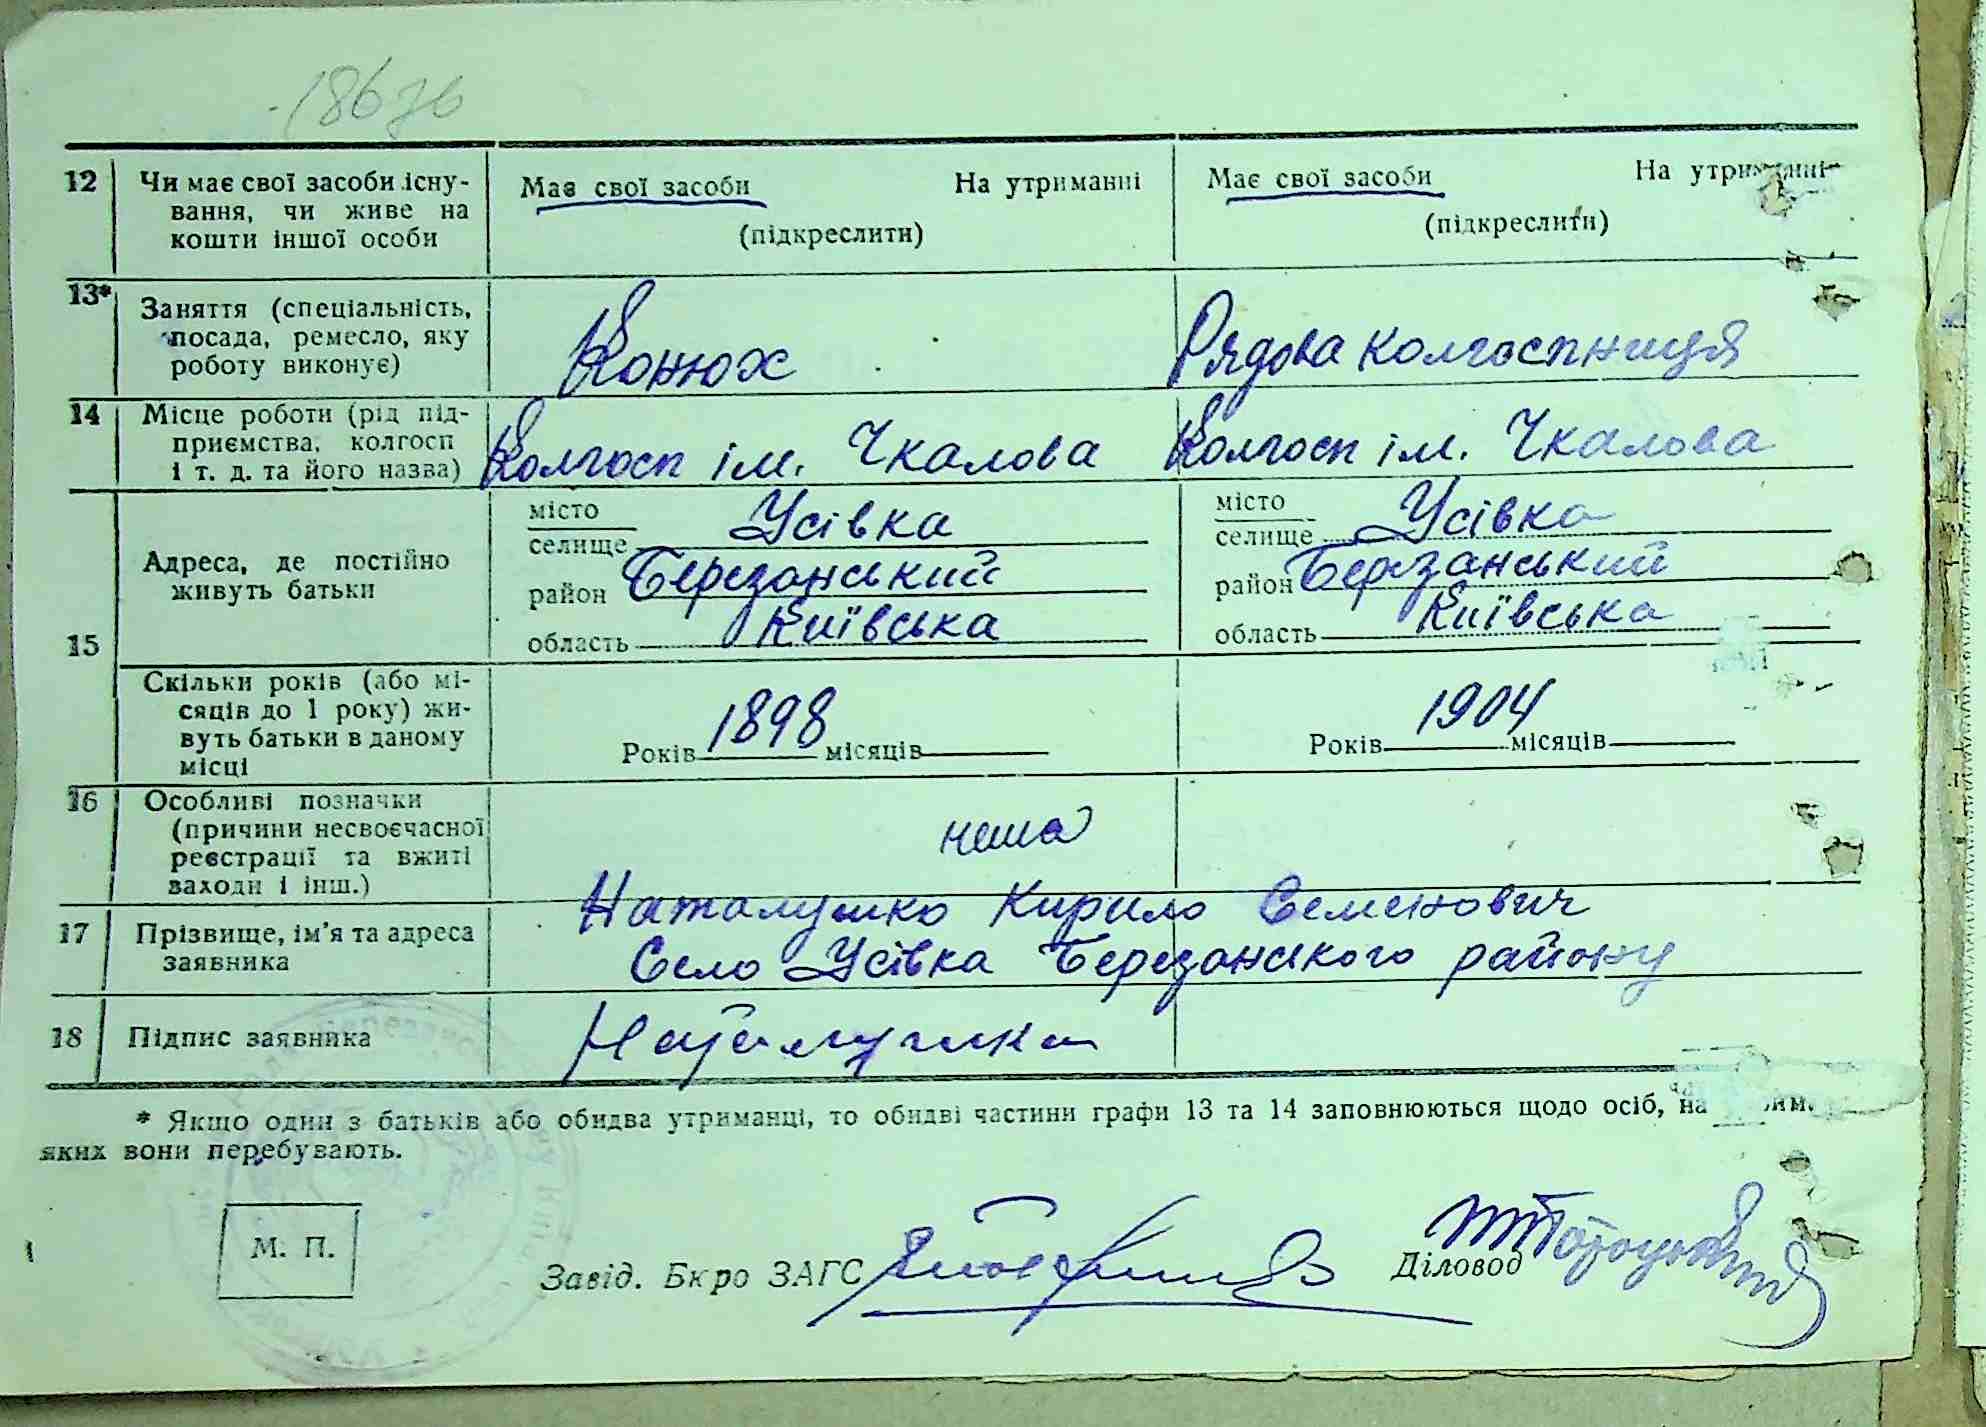 12 Чи має свої засоби існу-
вання, чи живе на
кошти іншої особи
Має свої засоби На утриманні
(підкреслити)
Має свої засоби На утриманні
(підкреслити)
13* Заняття (спеціальність,
посада, ремесло, яку
роботу виконує)
Конюх
Рядова колгоспниця
14 Місце роботи (рід під-
приємства, колгосп
і т. д. та його назва)
Колгосп ім. Чкалова
Колгосп ім. Чкалова
15
Адреса, де постійно
живуть батьки
місто
селище Усівка
район Березанський
область Київська
місто
селище Усівка
район Березанський
область Київська
Скільки років (або мі-
сяців до 1 року) жи-
вуть батьки в даному
місці
Років 1898 місяців
Років 1904 місяців
16 Особливі позначки
(причини несвоєчасної
реєстрації та вжиті
заходи і інш.)
нема
17 Прізвище, ім'я та адреса
заявника
Наталушко Кирило Семенович
Село Усівка Березанського району
18 Підпис заявника
* Якщо один з батьків або обидва утриманці, то обидві частини графи 13 та 14 заповнюються щодо осіб, на
яких вони перебувають.
М. П.
Завід. Бюро ЗАГС
Діловод